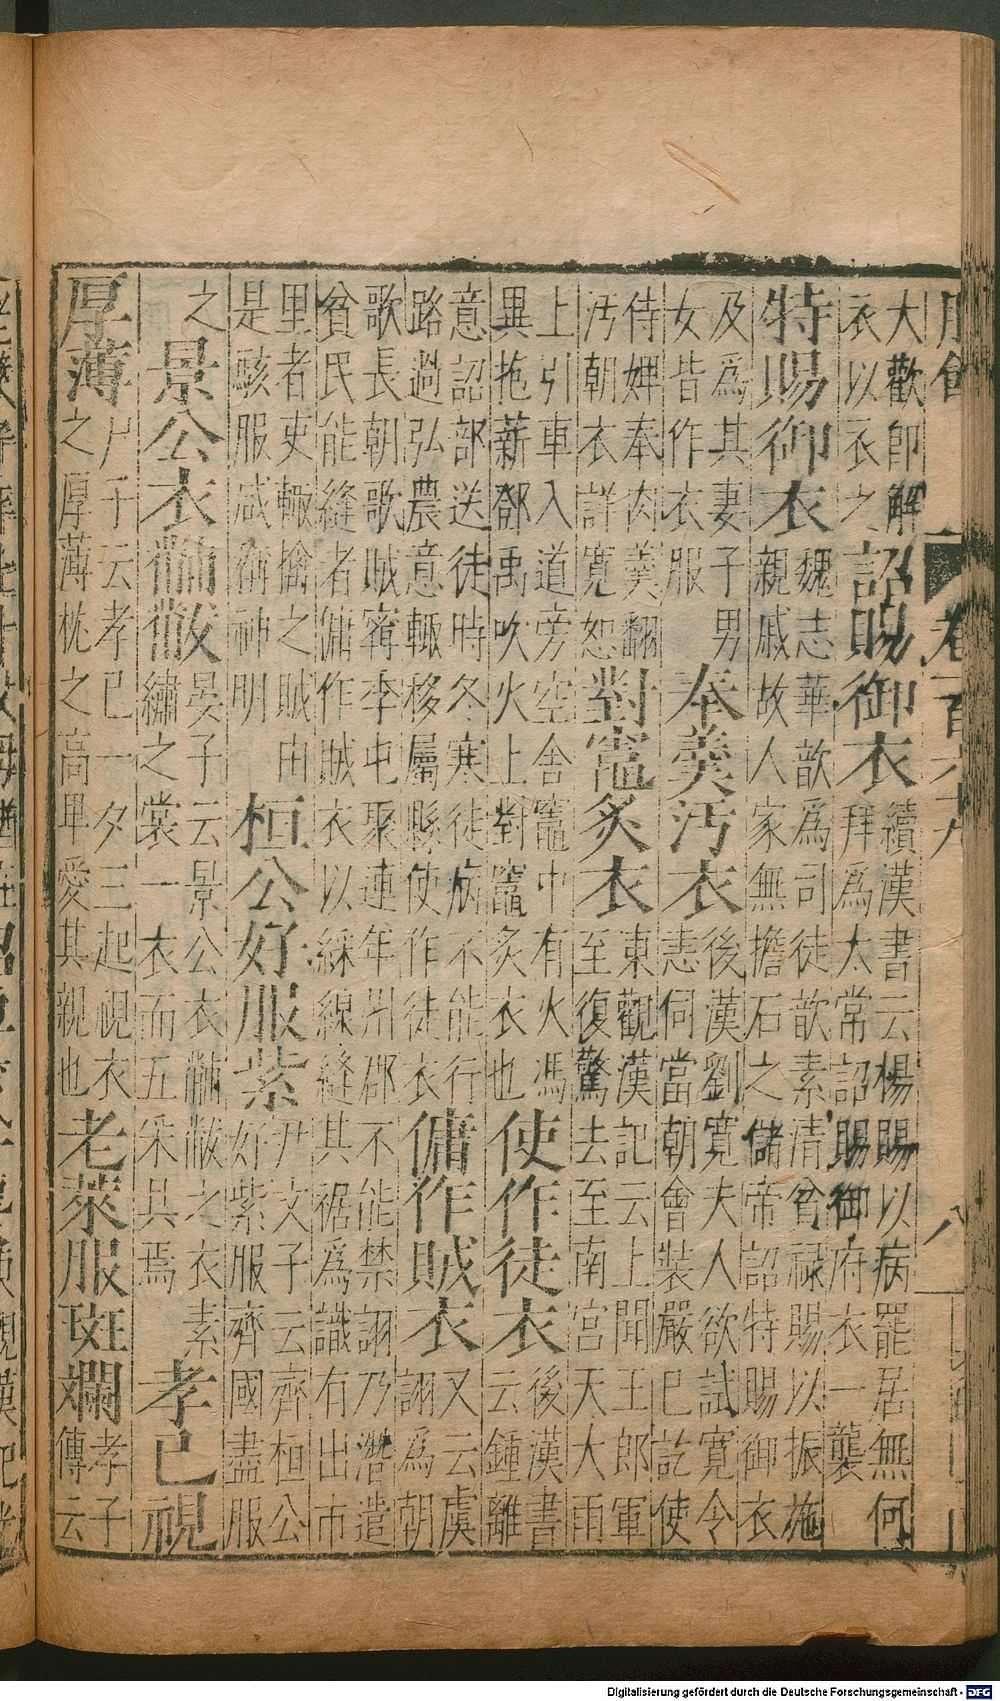 大歡即解衣以衣之詔賜御衣續漢書云楊賜以病罷居無何拜爲太常詔賜御府衣一襲
特賜御衣魏志華歆爲司徒歆素清貧祿賜以振施親戚故人家無擔石之儲帝詔特賜御衣
及爲其妻子男女皆作衣服奉羹汚衣後漢劉寬夫人欲試寬令恚伺當朝會裝嚴已訖使
侍婢奉肉羹翻汚朝衣詳寬恕對竈炙衣東觀漢記云上聞王郎軍至復驚去至南宮天大雨
上引車入道旁空舍竈中有火馮異抱薪鄧禹吹火上對竈炙衣也使作徒衣後漢書云鍾離
意認部送徒時冬寒徒病不能行路過弘農意輙移屬縣使作徒衣傭作賊衣又云虞詡爲朝
歌長朝歌賊寗李屯聚連年州郡不能禁詡乃潛遣貧民能縫者傭作賊衣以綵線縫其裾爲識有出市
里者吏輙擒之賊由是駭服咸稱神明桓公好服紫尹文子云齊桓公好紫服齊國盡服
之景公衣黼黻晏子云景公衣黼黻之衣素繡之裳一衣而五采具焉孝己視
厚薄尸子云孝己一夕三起視衣之厚薄枕之高卑愛其親也老萊服斑斕孝子傳云
Digitalisierung gefördert durch die Deutsche Forschungsgemeinschaft - DFG